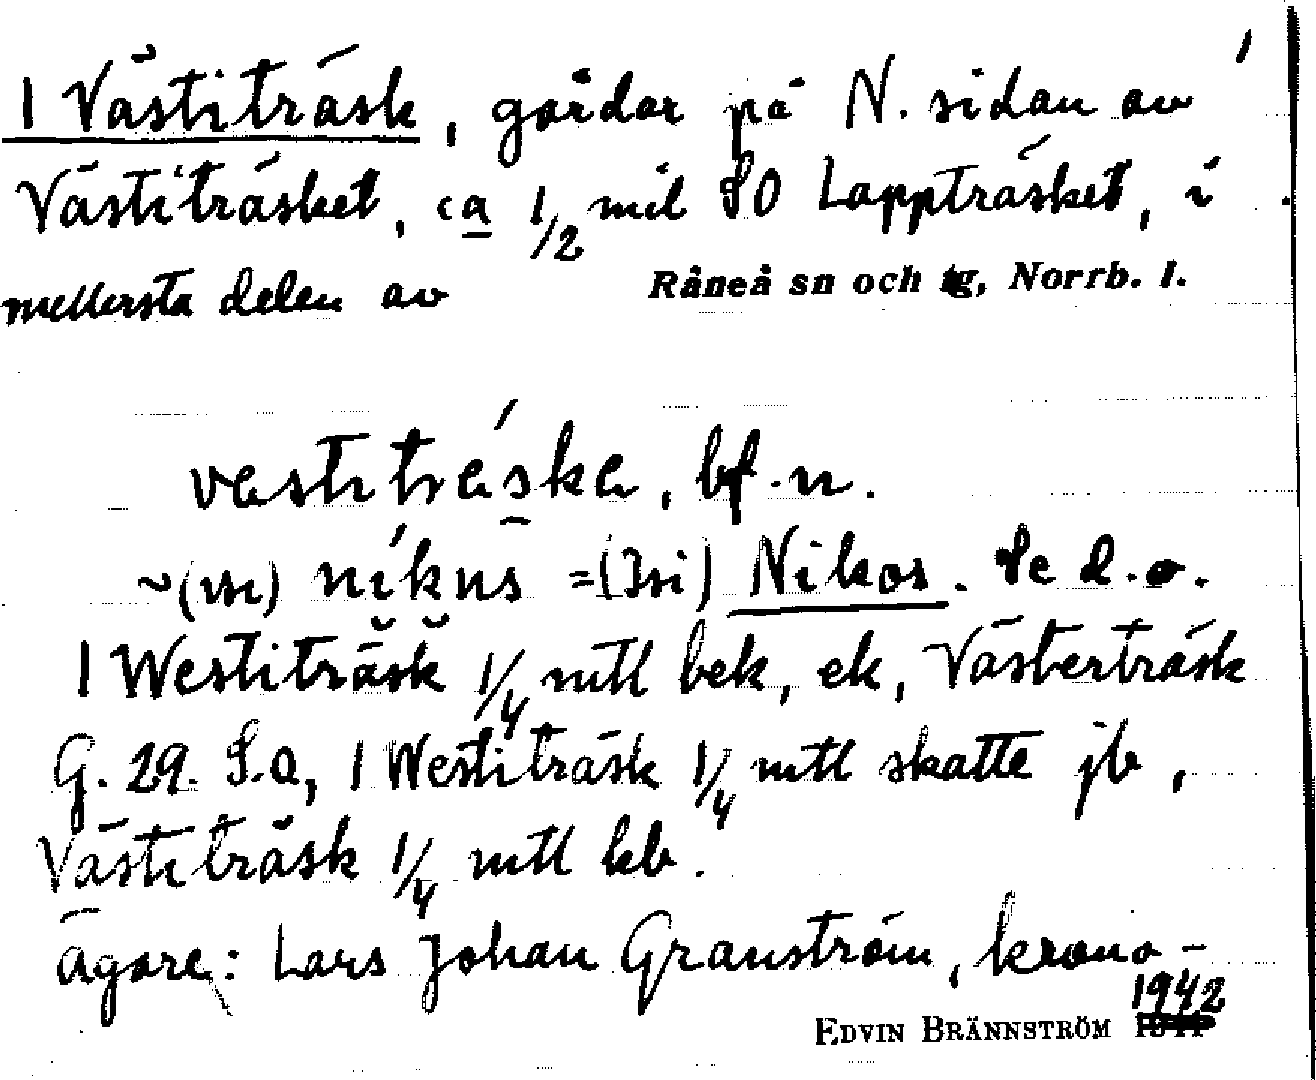 1
1 Västiträsk, gårdar på N. sidan av
Västiträsket, ca 1/2 mil SO Lappträsket, i
mellersta delen av Råneå sn och tg, Norrb. l.
vestitrèska, bf. n.
~(vn) níkus =(3ni) Nikos. Se d. o.
1 Westiträsk 1/4 mtl bek, ek, Västerträsk
G. 29. S.a, 1 Westiträsk 1/4 mtl skatte jb,
Västiträsk 1/4 mtl kb.
ägare: Lars Johan Granström, krono-
EDVIN BRÄNNSTRÖM 1942